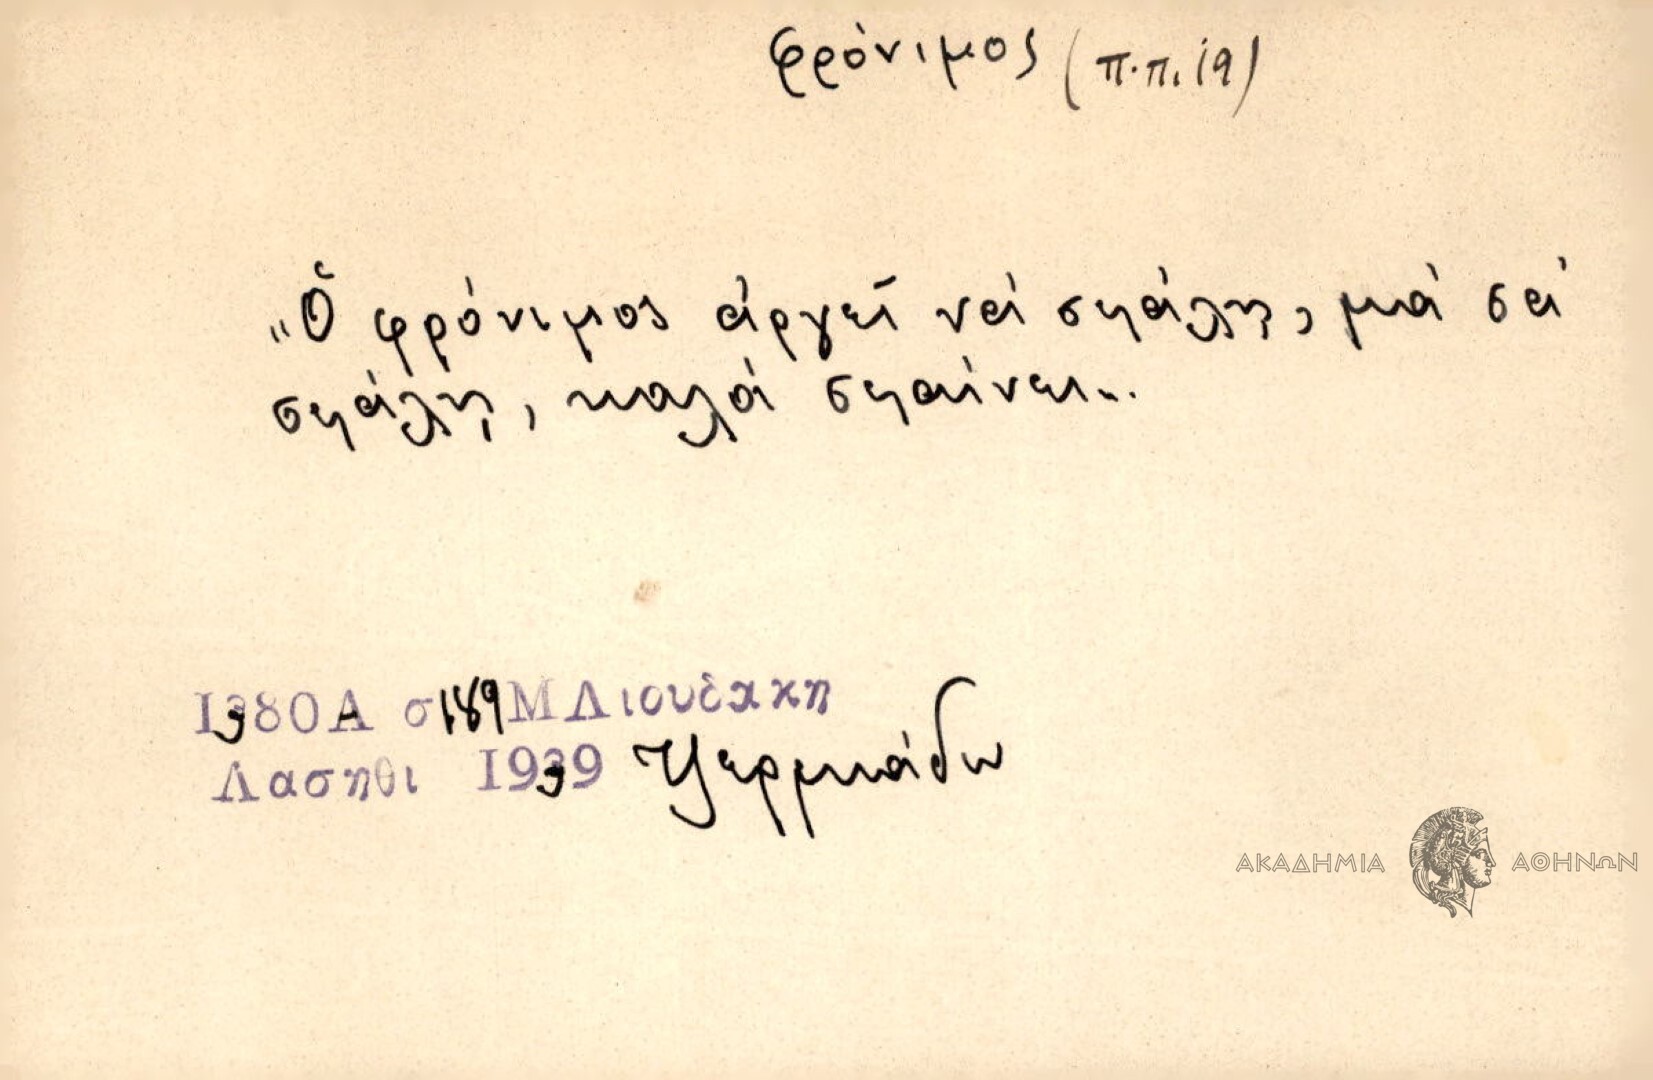 φρόνιμος (π.π. 19)
„Ὁ φρόνιμος ἀργεῖ νὰ σφάλῃ, μὰ σὰ
σφάλῃ, καλὰ σφαίνει„.
1380Α σ189 Μ Λιουδακη
Λασηθι 1939 Τζερμιάδω
ΑΚΑΔΗΜΙΑ ΑΘΗΝΩΝ